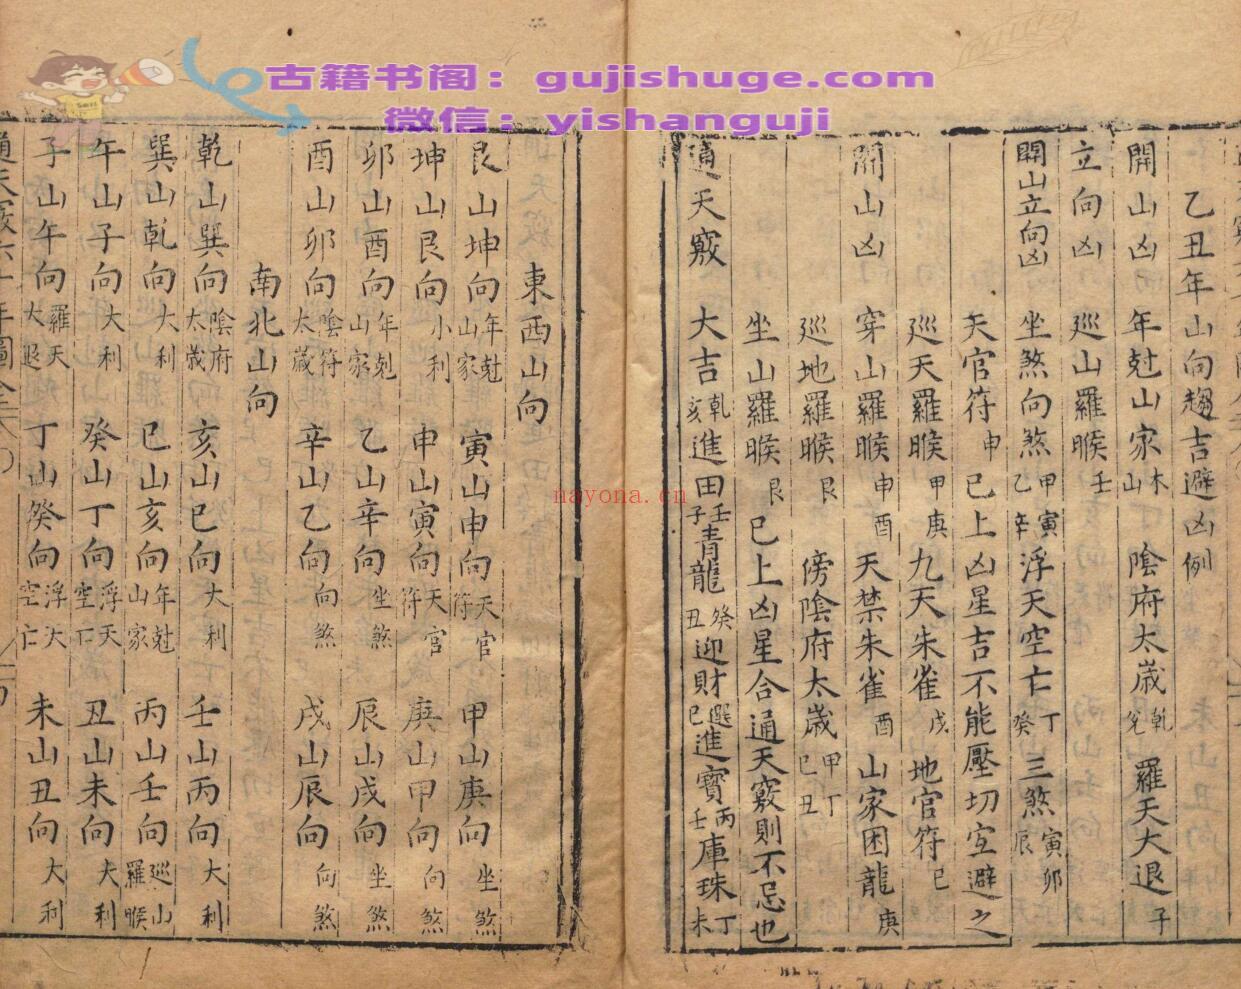 古籍书阁：gujishuge.com
微信：yishanguji
nayona.cn
乙丑年山向趨吉避凶例
開山凶 年尅山家木山 陰府太歲乾兌 羅天大退子
立向凶 廵山羅睺壬
開山立向凶 坐煞向煞甲寅乙辛 浮天空亡丁癸 三煞寅卯辰
天官符申 已上凶星吉不能壓切宜避之
廵天羅睺甲庚 九天朱雀戌 地官符巳
開山凶 穿山羅睺申酉 天禁朱雀酉 山家困龍庚
廵地羅睺艮 傍陰府太歲甲丁巳丑
坐山羅睺艮 已上凶星合通天竅則不忌也
通天竅 大吉乾亥進田壬子青龍癸丑迎財巽巳進寶丙壬庫珠丁未
東西山向
艮山坤向年尅山家 寅山申向天官符 甲山庚向坐煞
坤山艮向小利 申山寅向天官符 庚山甲向向煞
卯山酉向年尅山家 乙山辛向坐煞 辰山戌向坐煞
酉山卯向陰符太歲 辛山乙向向煞 戌山辰向向煞
南北山向
乾山巽向陰府太歲 亥山巳向大利 壬山丙向大利
巽山乾向大利 巳山亥向年尅山家 丙山壬向廵山羅睺
午山子向大利 癸山丁向浮天空亡 丑山未向大利
子山午向羅天大退 丁山癸向浮天空亡 未山丑向大利